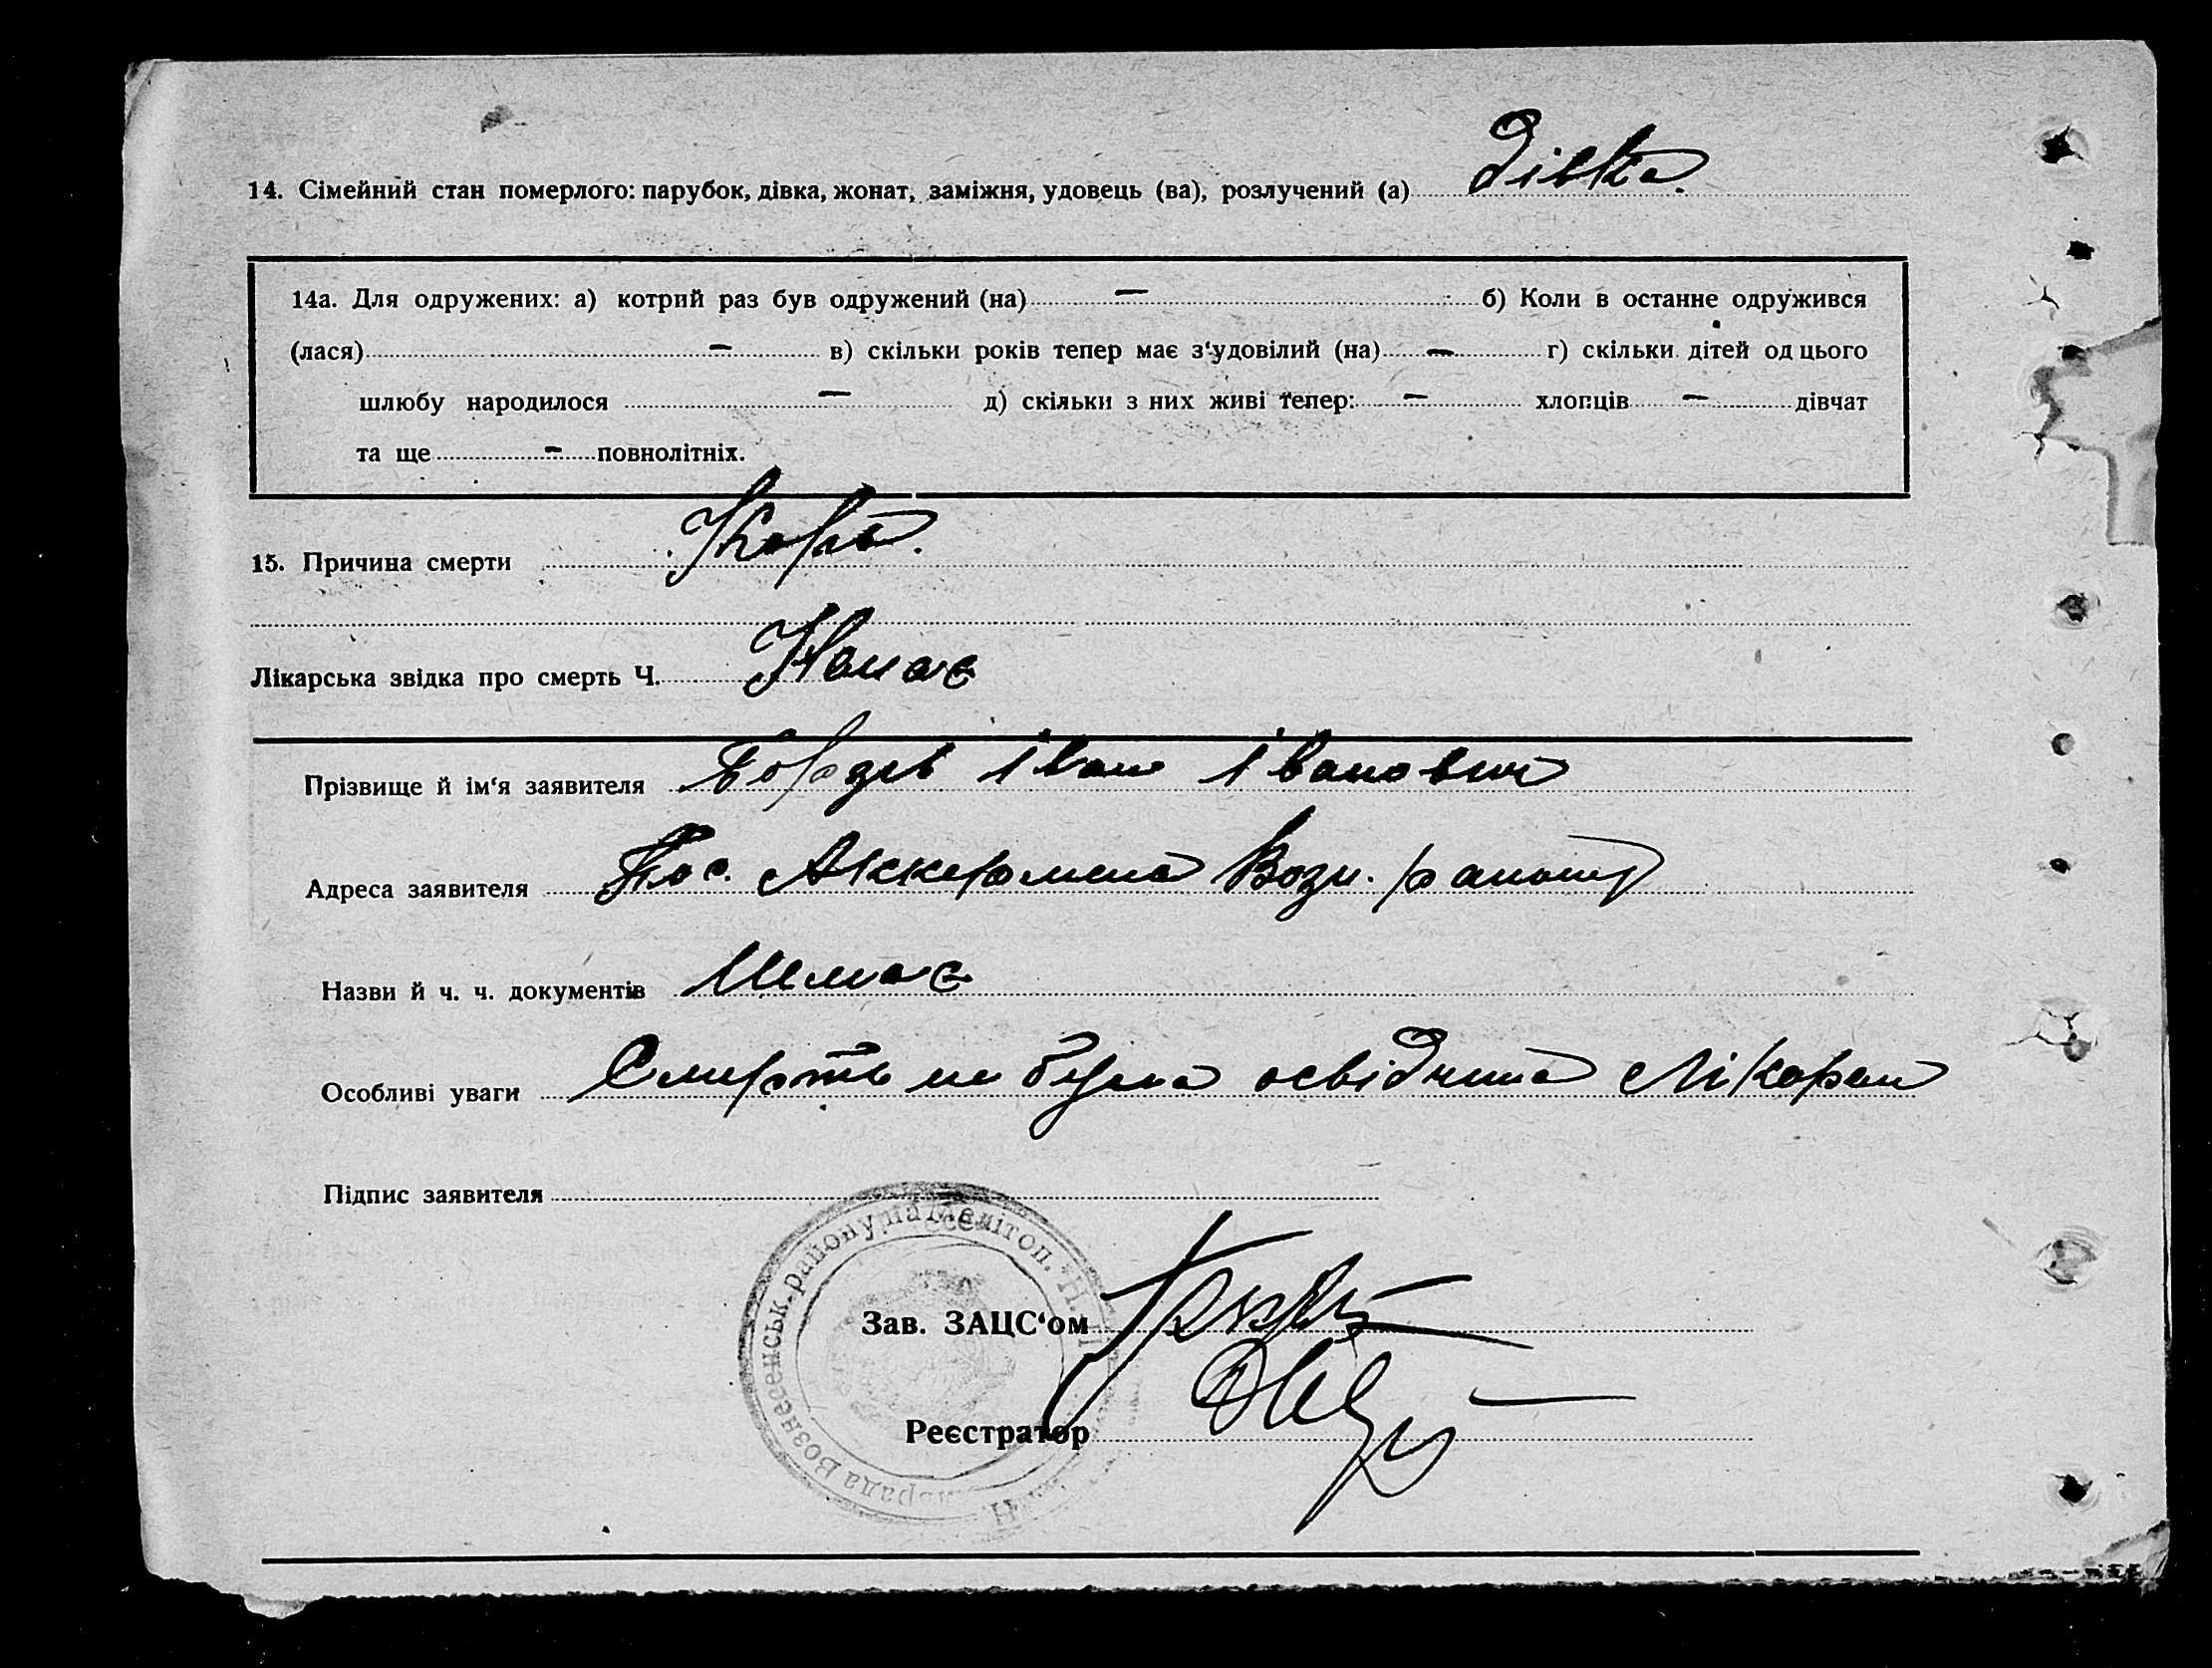 14. Сімейний стан померлого: парубок, дівка, жонат, заміжня, удовець (ва), розлучений (а) Дівка.
14а. Для одружених: а) котрий раз був одружений (на) — б) Коли в останне одружився
(лася) — в) скільки років тепер має з‘удовілий (на) — г) скільки дітей од цього
шлюбу народилося — д) скільки з них живі тепер: — хлопців — дівчат
та ще — повнолітніх.
15. Причина смерти Корь.
Лікарська звідка про смерть Ч. Немає
Прізвище й ім‘я заявителя Іван Іванович
Адреса заявителя Пос. Аккермена Возн. району
Назви й ч. ч. документів Немає
Особливі уваги Смерть не була освідчина Лікарем
Підпис заявителя
Вознесенськ. району на Мелітоп.
Зав. ЗАЦС‘ом
Реєстратор